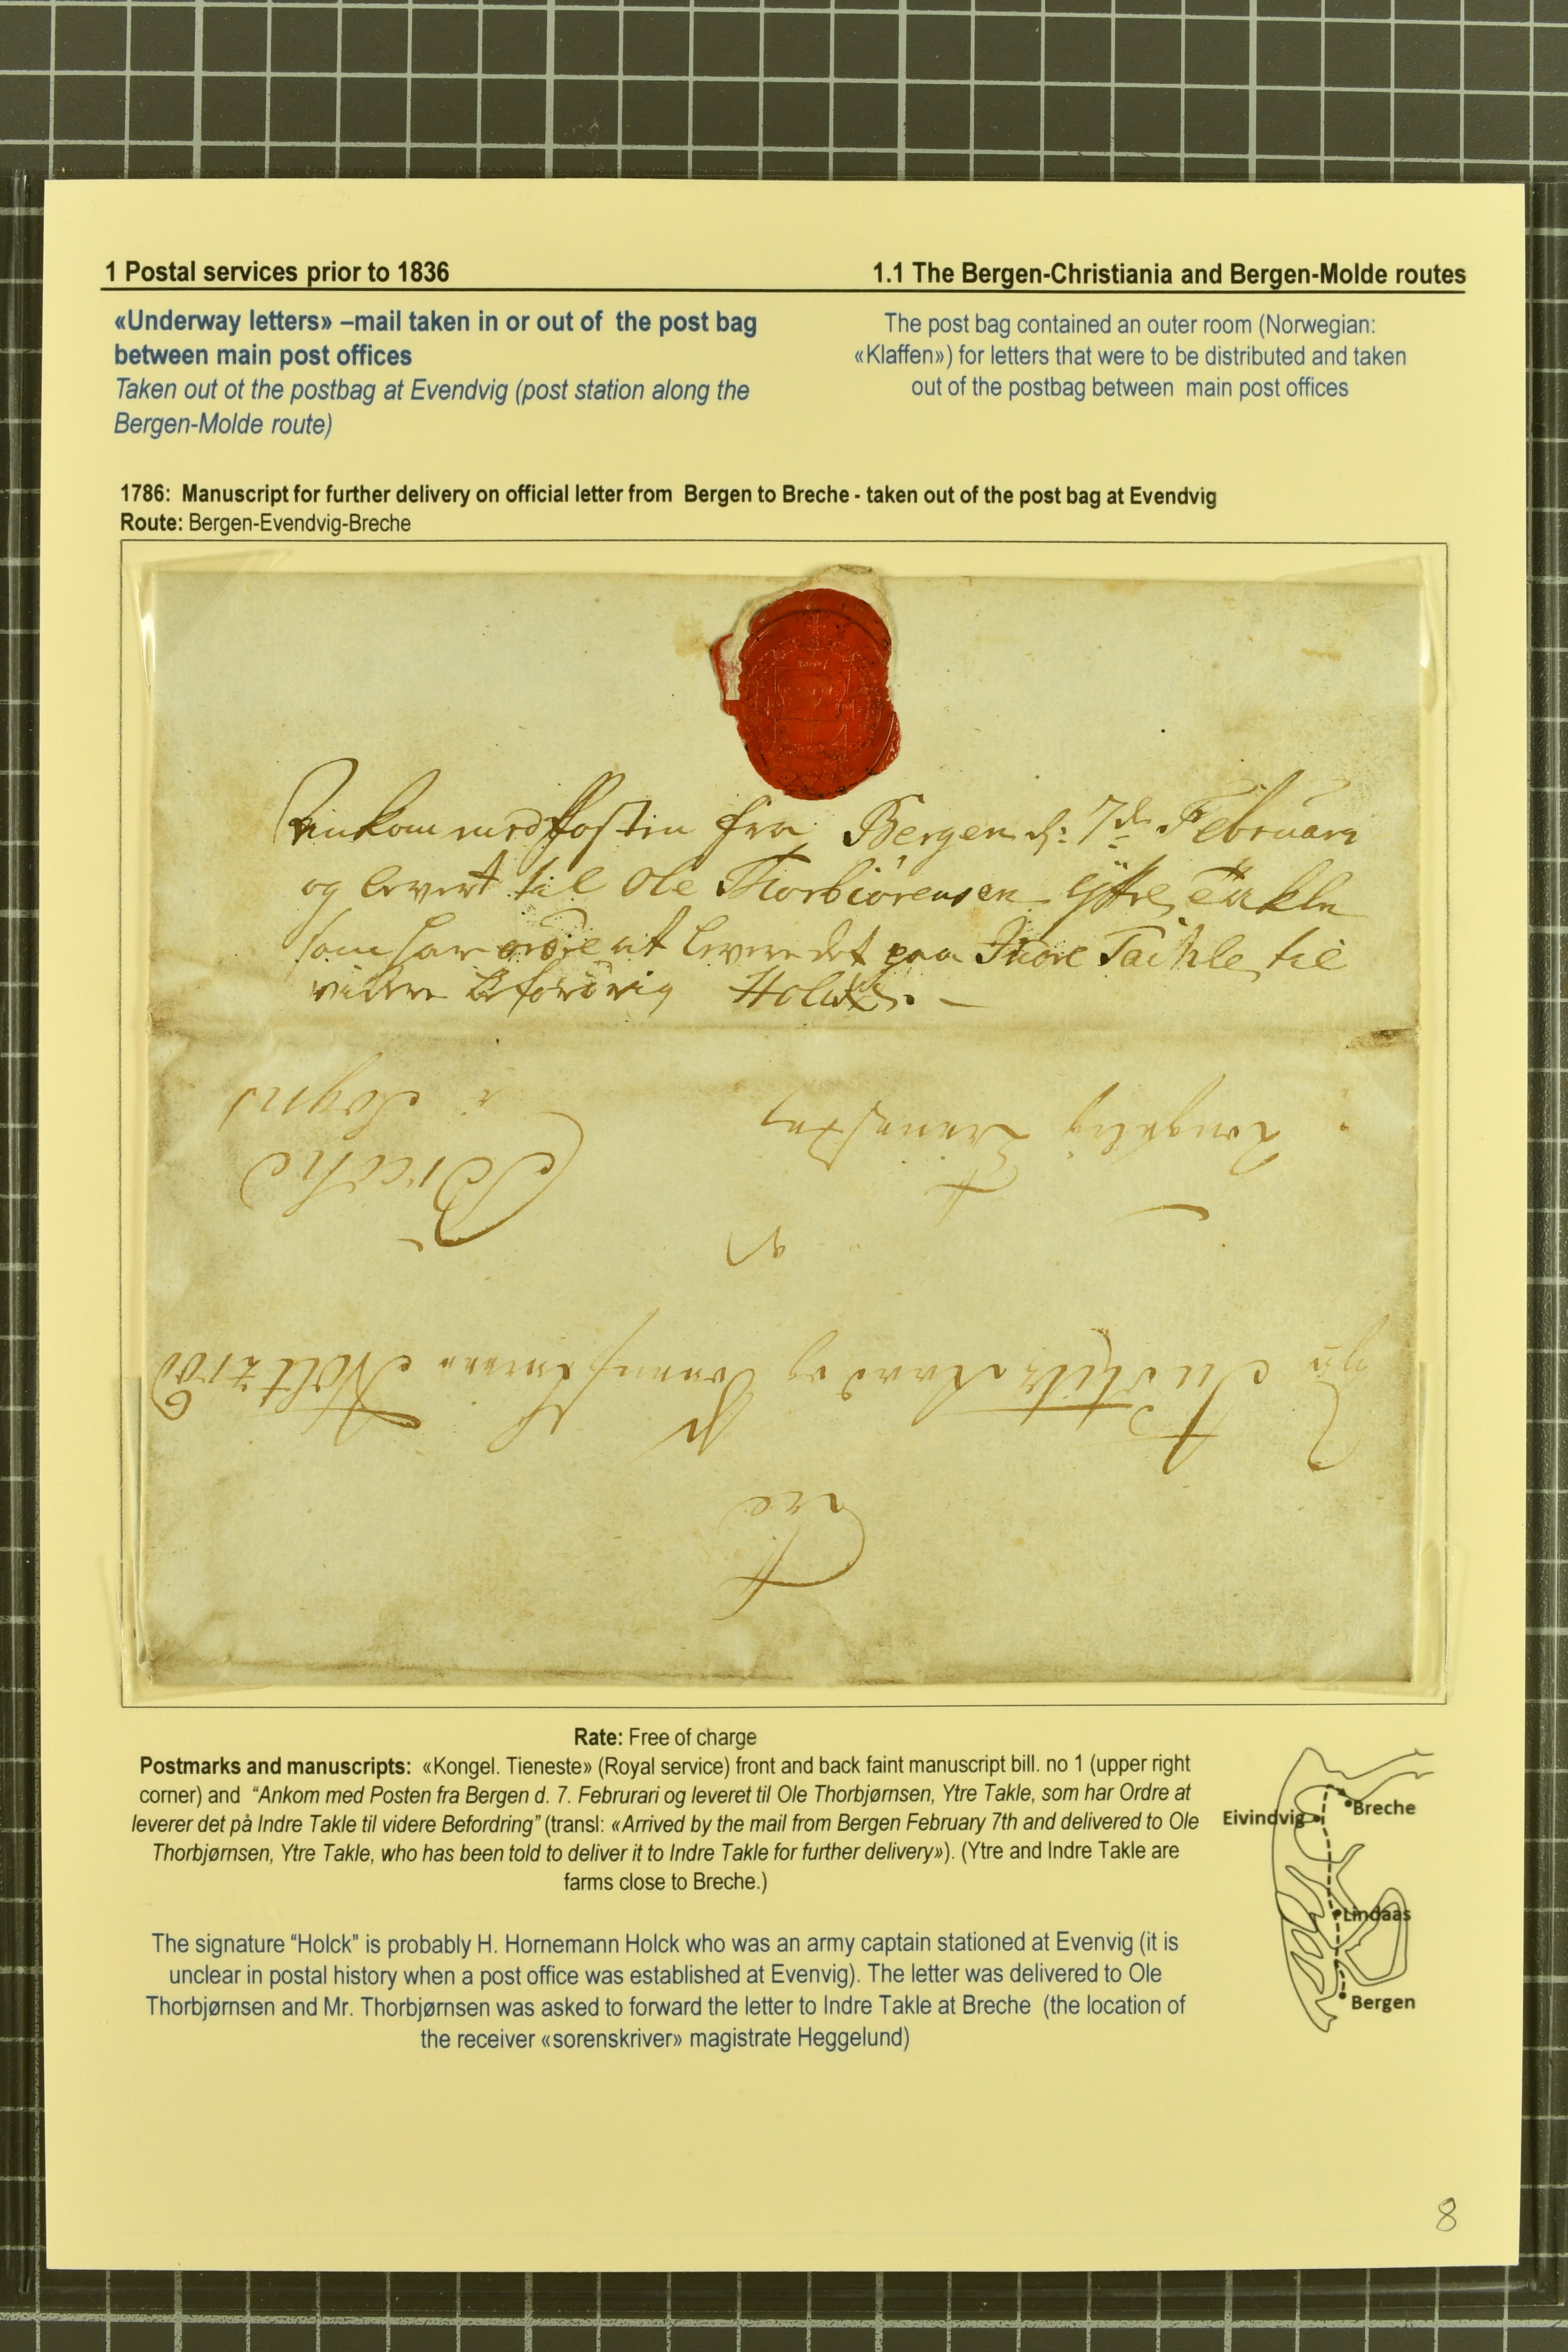 1 Postal services prior to 1836
1.1 The Bergen-Christiania and Bergen-Molde routes
«Underway letters» –mail taken in or out of the post bag
between main post offices
Taken out ot the postbag at Evendvig (post station along the
Bergen-Molde route)
The post bag contained an outer room (Norwegian:
«Klaffen») for letters that were to be distributed and taken
out of the postbag between main post offices
1786: Manuscript for further delivery on official letter from Bergen to Breche - taken out of the post bag at Evendvig
Route: Bergen-Evendvig-Breche
Ankom med Posten fra Bergen d: 7de Februari
og levert til Ole Thorbiørensen Ÿttre Takle
som har ordre at levere det paa Indre Takle til
videre Befordrig Holck. –
Kongelig Tieneste
i Sogns
Breche
Rate: Free of charge
Postmarks and manuscripts: «Kongel. Tieneste» (Royal service) front and back faint manuscript bill. no 1 (upper right
corner) and “Ankom med Posten fra Bergen d. 7. Februrari og leveret til Ole Thorbjørnsen, Ytre Takle, som har Ordre at
leverer det på Indre Takle til videre Befordring” (transl: «Arrived by the mail from Bergen February 7th and delivered to Ole
Thorbjørnsen, Ytre Takle, who has been told to deliver it to Indre Takle for further delivery»). (Ytre and Indre Takle are
farms close to Breche.)
The signature “Holck” is probably H. Hornemann Holck who was an army captain stationed at Evenvig (it is
unclear in postal history when a post office was established at Evenvig). The letter was delivered to Ole
Thorbjørnsen and Mr. Thorbjørnsen was asked to forward the letter to Indre Takle at Breche (the location of
the receiver «sorenskriver» magistrate Heggelund)
Eivindvig
Breche
Lindaas
Bergen
8